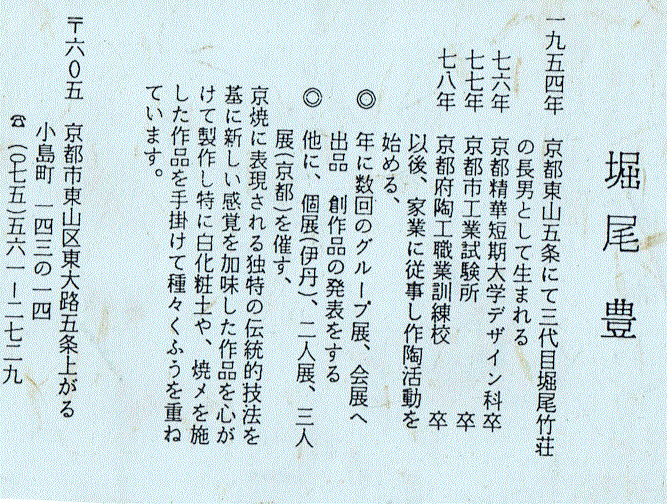 堀尾豊
一九五四年　京都東山五条にて三代目堀尾竹荘
の長男として生まれる
七六年　京都精華短期大学デザイン科卒
七七年　京都市工業試験所　卒
七八年　京都府陶工職業訓練校　卒
以後、家業に従事し作陶活動を
始める、
◎　年に数回のグループ展、会展へ
出品　創作品の発表をする
◎　他に、個展(伊丹)、二人展、三人
展(京都)を催す、
京焼に表現される独特の伝統的技法を
基に新しい感覚を加味した作品を心が
けて製作し特に白化粧土や、焼〆を施
した作品を手掛けて種々くふうを重ね
ています。
〒六〇五　京都市東山区東大路五条上がる
小島町　一四三の一四
☎(〇七五)五六一ー二七二九